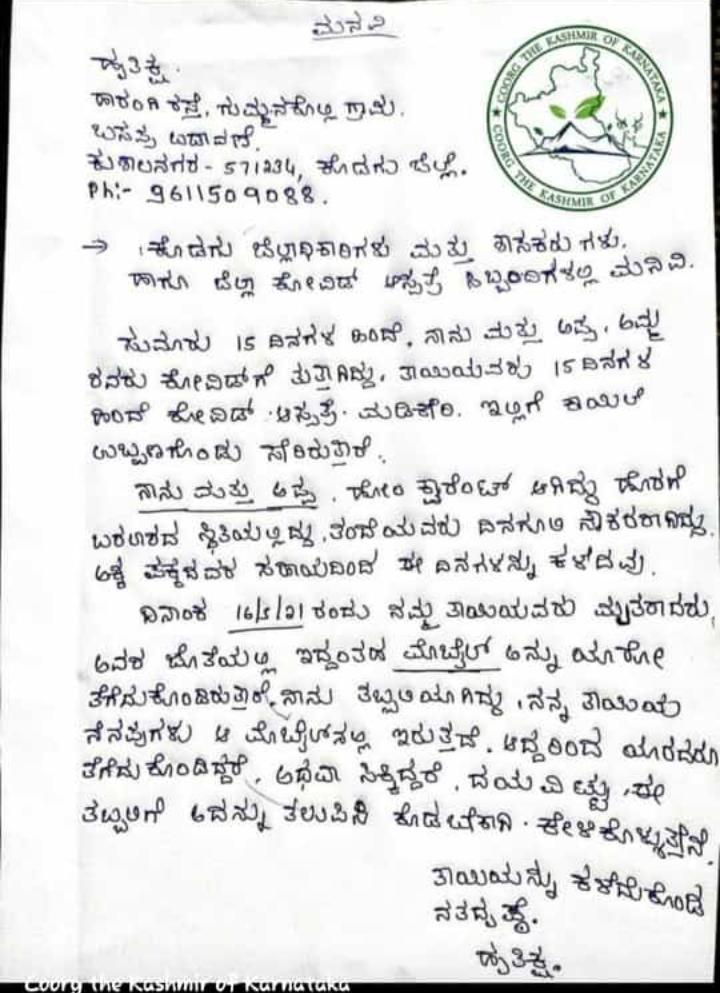 ಮನವಿ
ಹೃತಿಕ್ಷ.
ಹಾರಂಗಿ ರಸ್ತೆ, ಗುಮ್ಮನಕೊಲ್ಲಿ ಗ್ರಾಮ.
ಬಸಪ್ಪ ಬಡಾವಣೆ.
ಕುಶಾಲನಗರ - 571234, ಕೊಡಗು ಜಿಲ್ಲೆ.
Ph:- 9611509088.
COORG THE KASHMIR OF KARNATAKA
COORG THE KASHMIR OF KARNATAKA
→ ಕೊಡಗು ಜಿಲ್ಲಾಧಿಕಾರಿಗಳು ಮತ್ತು ಶಾಸಕರುಗಳು.
ಹಾಗೂ ಜಿಲ್ಲಾ ಕೋವಿಡ್ ಆಸ್ಪತ್ರೆ ಸಿಬ್ಬಂದಿಗಳಲ್ಲಿ ಮನಿವಿ.
ಸುಮಾರು 15 ದಿನಗಳ ಹಿಂದೆ, ನಾನು ಮತ್ತು ಅಪ್ಪ, ಅಮ್ಮ
ರವರು ಕೋವಿಡ್‌ಗೆ ತುತ್ತಾಗಿದ್ದು, ತಾಯಿಯವರು 15 ದಿನಗಳ
ಹಿಂದೆ ಕೋವಿಡ್ ಆಸ್ಪತ್ರೆ. ಮಡಿಕೇರಿ. ಇಲ್ಲಿಗೆ ಕಾಯಿಲೆ
ಉಲ್ಬಣಗೊಂಡು ಸೇರಿರುತ್ತಾರೆ.
ನಾನು ಮತ್ತು ಅಪ್ಪ, ಹೋಂ ಕ್ವಾರೆಂಟ್ ಆಗಿದ್ದು ಹೊರಗೆ
ಬರಲಾರದ ಸ್ಥಿತಿಯಲ್ಲಿದ್ದು, ತಂದೆಯವರು ದಿನಗೂಲಿ ನೌಕರರಾಗಿದ್ದು.
ಅಕ್ಕ ಪಕ್ಕದವರ ಸಹಾಯದಿಂದ ಈ ದಿನಗಳನ್ನು ಕಳೆದವು.
ದಿನಾಂಕ 16/5/21 ರಂದು ನಮ್ಮ ತಾಯಿಯವರು ಮೃತರಾದರು,
ಅವರ ಜೊತೆಯಲ್ಲಿ ಇದ್ದಂತಹ ಮೊಬೈಲ್ ಅನ್ನು ಯಾರೋ
ತೆಗೆದುಕೊಂಡಿರುತ್ತಾರೆ, ನಾನು ತಬ್ಬಲಿಯಾಗಿದ್ದು, ನನ್ನ ತಾಯಿಯ
ನೆನಪುಗಳು ಆ ಮೊಬೈಲ್‌ನಲ್ಲಿ ಇರುತ್ತದೆ. ಆದ್ದರಿಂದ ಯಾರಾದರೂ
ತೆಗೆದುಕೊಂಡಿದ್ದರೆ, ಅಥವಾ ಸಿಕ್ಕಿದ್ದರೆ, ದಯವಿಟ್ಟು ಈ
ತಬ್ಬಲಿಗೆ ಅದನ್ನು ತಲುಪಿಸಿ ಕೊಡಬೇಕಾಗಿ. ಕೇಳಿಕೊಳ್ಳುತ್ತೇನೆ.
ತಾಯಿಯನ್ನು ಕಳೆದುಕೊಂಡ
ನತದೃಷ್ಟೆ.
ಹೃತಿಕ್ಷ.
Coorg the Kashmir of Karnataka